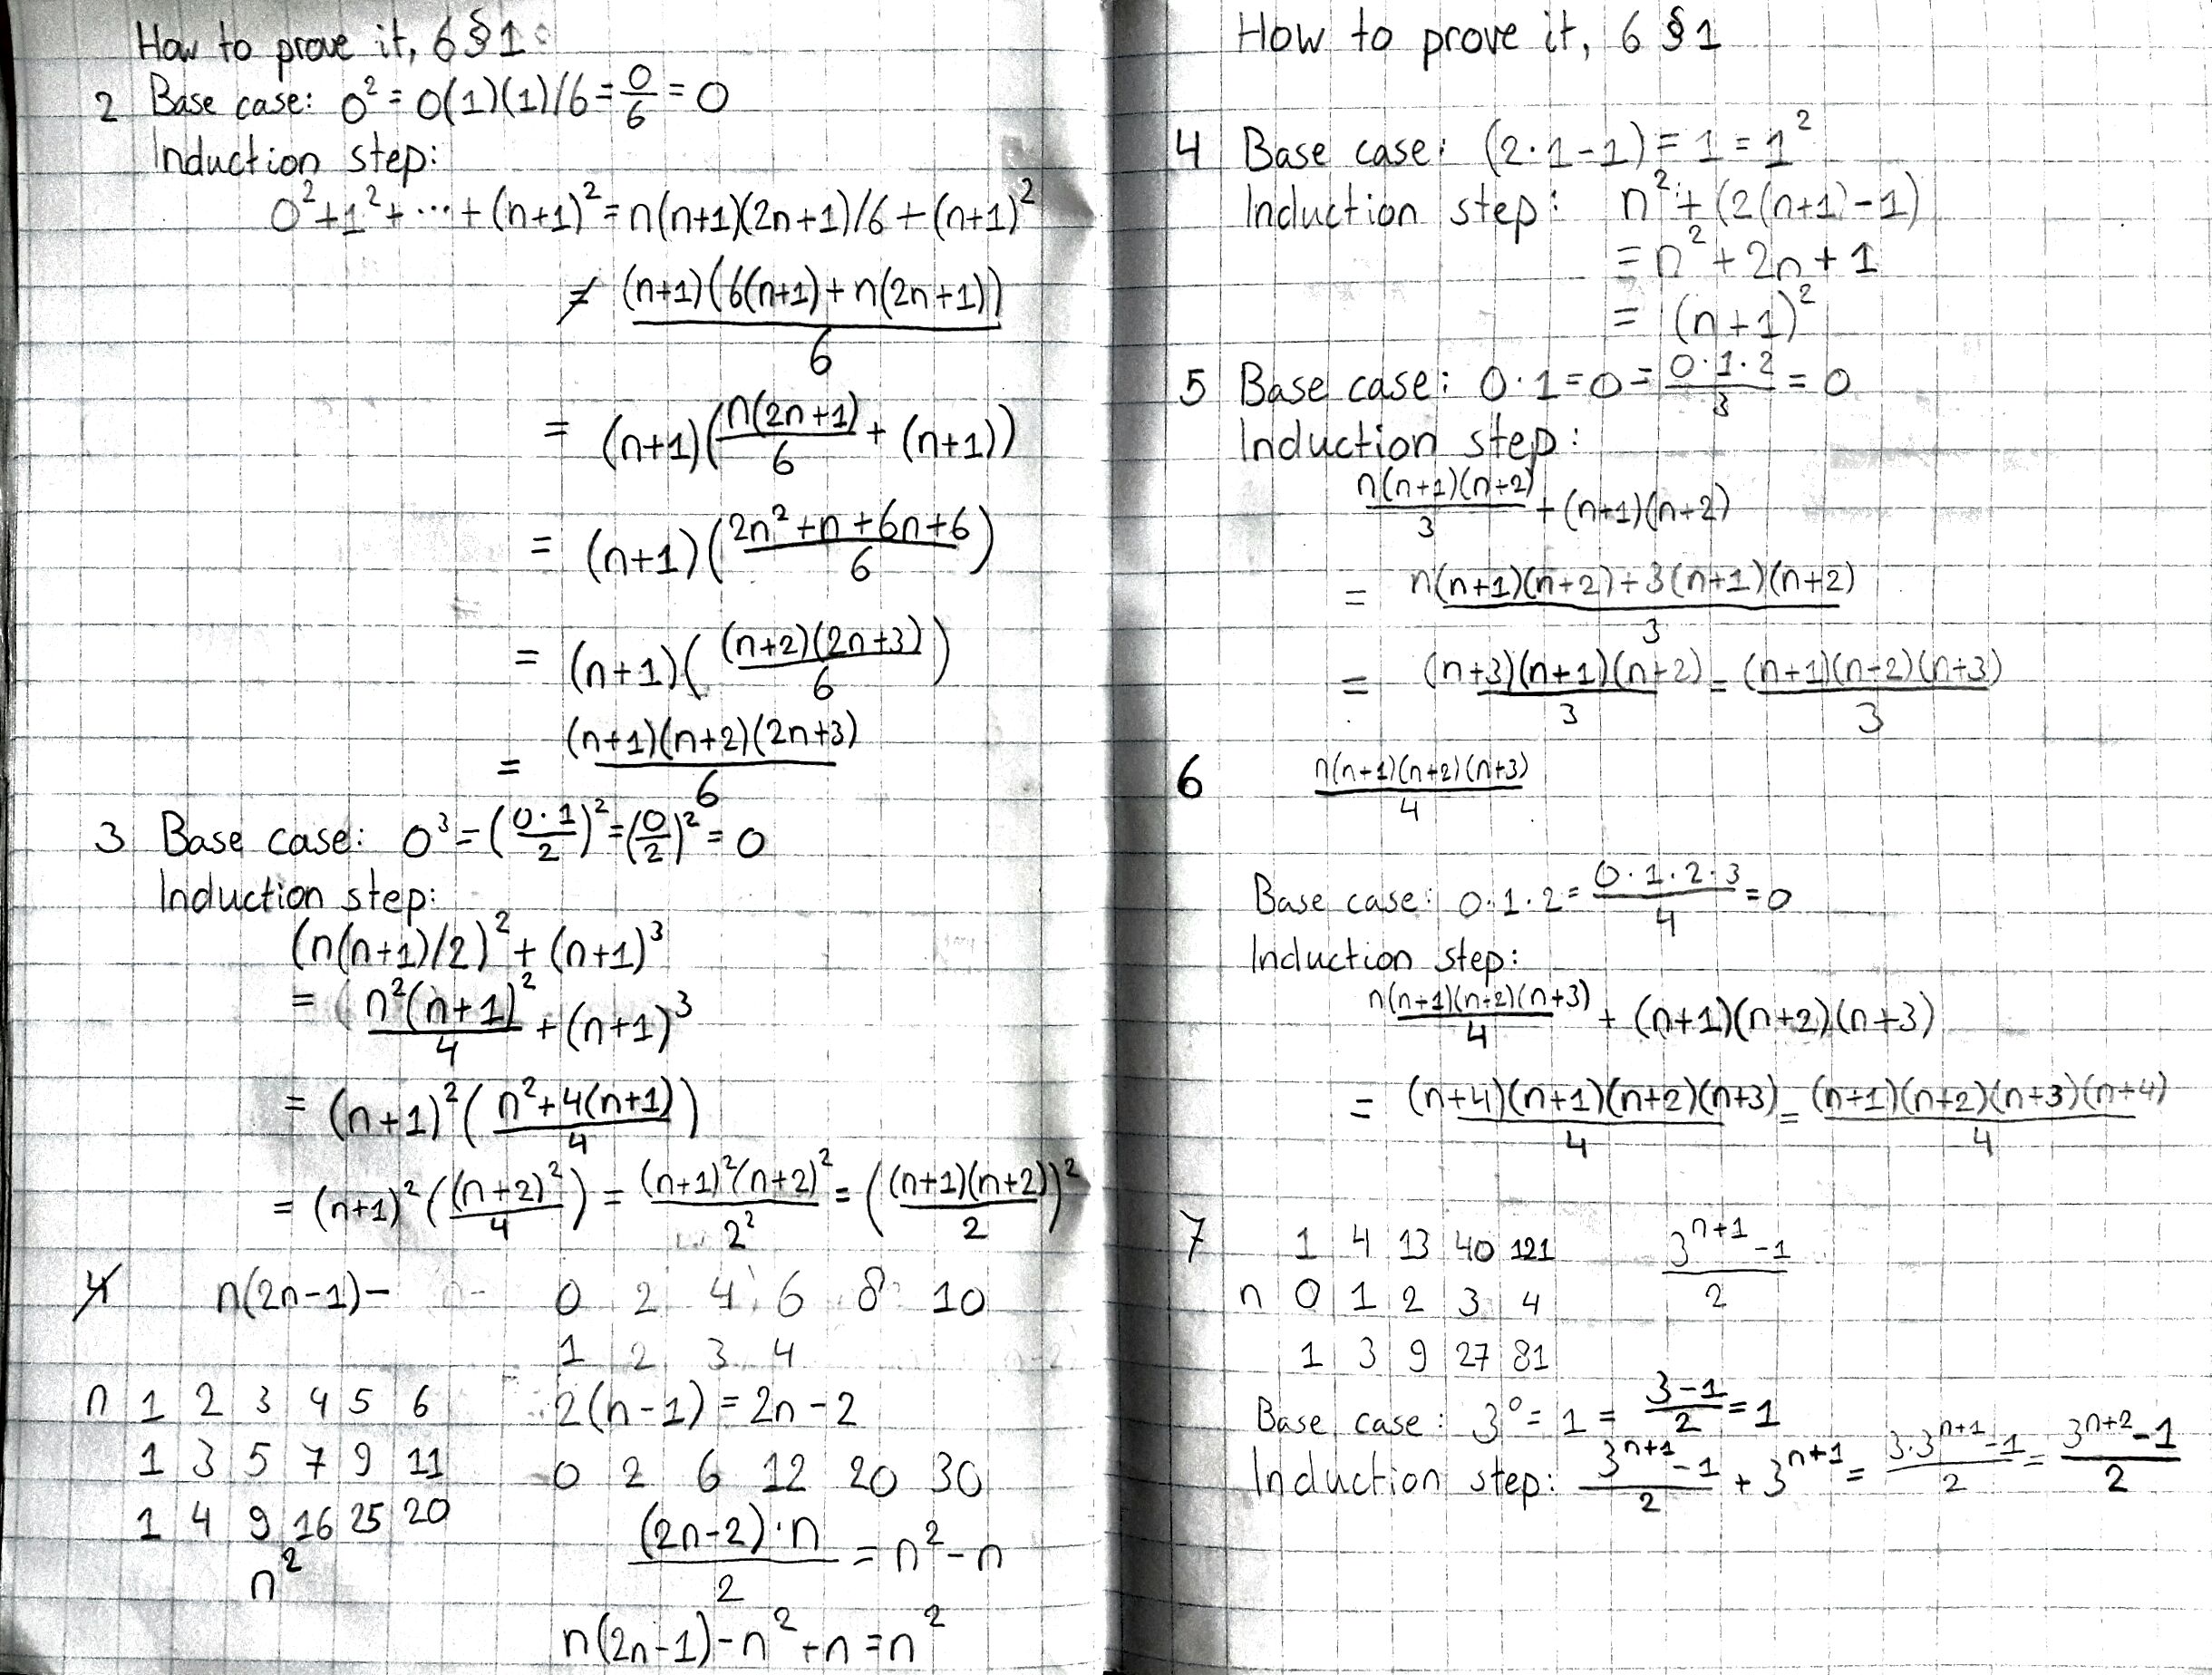 How to prove it, 6 §1
2 Base case: 0² = 0(1)(1)/6 = 0/6 = 0
Induction step:
0² + 1² + ... + (n+1)² = n(n+1)(2n+1)/6 + (n+1)²
= (n+1)(6(n+1) + n(2n+1))/6
= (n+1)(n(2n+1)/6 + (n+1))
= (n+1)((2n² + n + 6n + 6)/6)
= (n+1)((n+2)(2n+3)/6)
= (n+1)(n+2)(2n+3)/6
3 Base case: 0³ = (0·1/2)² = (0/2)² = 0
Induction step:
(n(n+1)/2)² + (n+1)³
= n²(n+1)²/4 + (n+1)³
= (n+1)²((n² + 4(n+1))/4)
= (n+1)²((n+2)²/4) = (n+1)²(n+2)²/2² = ((n+1)(n+2)/2)²
4 n(2n-1) -
n 1 2 3 4 5 6
1 3 5 7 9 11
1 4 9 16 25 20
n²
0 2 4 6 8 10
1 2 3 4
2(n-1) = 2n - 2
0 2 6 12 20 30
(2n-2)·n/2 = n² - n
n(2n-1) - n² + n = n²
How to prove it, 6 §1
4 Base case: (2·1-1) = 1 = 1²
Induction step: n² + (2(n+1) - 1)
= n² + 2n + 1
= (n+1)²
5 Base case: 0·1 = 0 = 0·1·2/3 = 0
Induction step:
n(n+1)(n+2)/3 + (n+1)(n+2)
= (n(n+1)(n+2) + 3(n+1)(n+2))/3
= (n+3)(n+1)(n+2)/3 = (n+1)(n+2)(n+3)/3
6 n(n+1)(n+2)(n+3)/4
Base case: 0·1·2 = 0·1·2·3/4 = 0
Induction step:
n(n+1)(n+2)(n+3)/4 + (n+1)(n+2)(n+3)
= (n+4)(n+1)(n+2)(n+3)/4 = (n+1)(n+2)(n+3)(n+4)/4
7 1 4 13 40 121 (3ⁿ⁺¹ - 1)/2
n 0 1 2 3 4
1 3 9 27 81
Base case: 3⁰ = 1 = (3-1)/2 = 1
Induction step: (3ⁿ⁺¹ - 1)/2 + 3ⁿ⁺¹ = (3·3ⁿ⁺¹ - 1)/2 = (3ⁿ⁺² - 1)/2